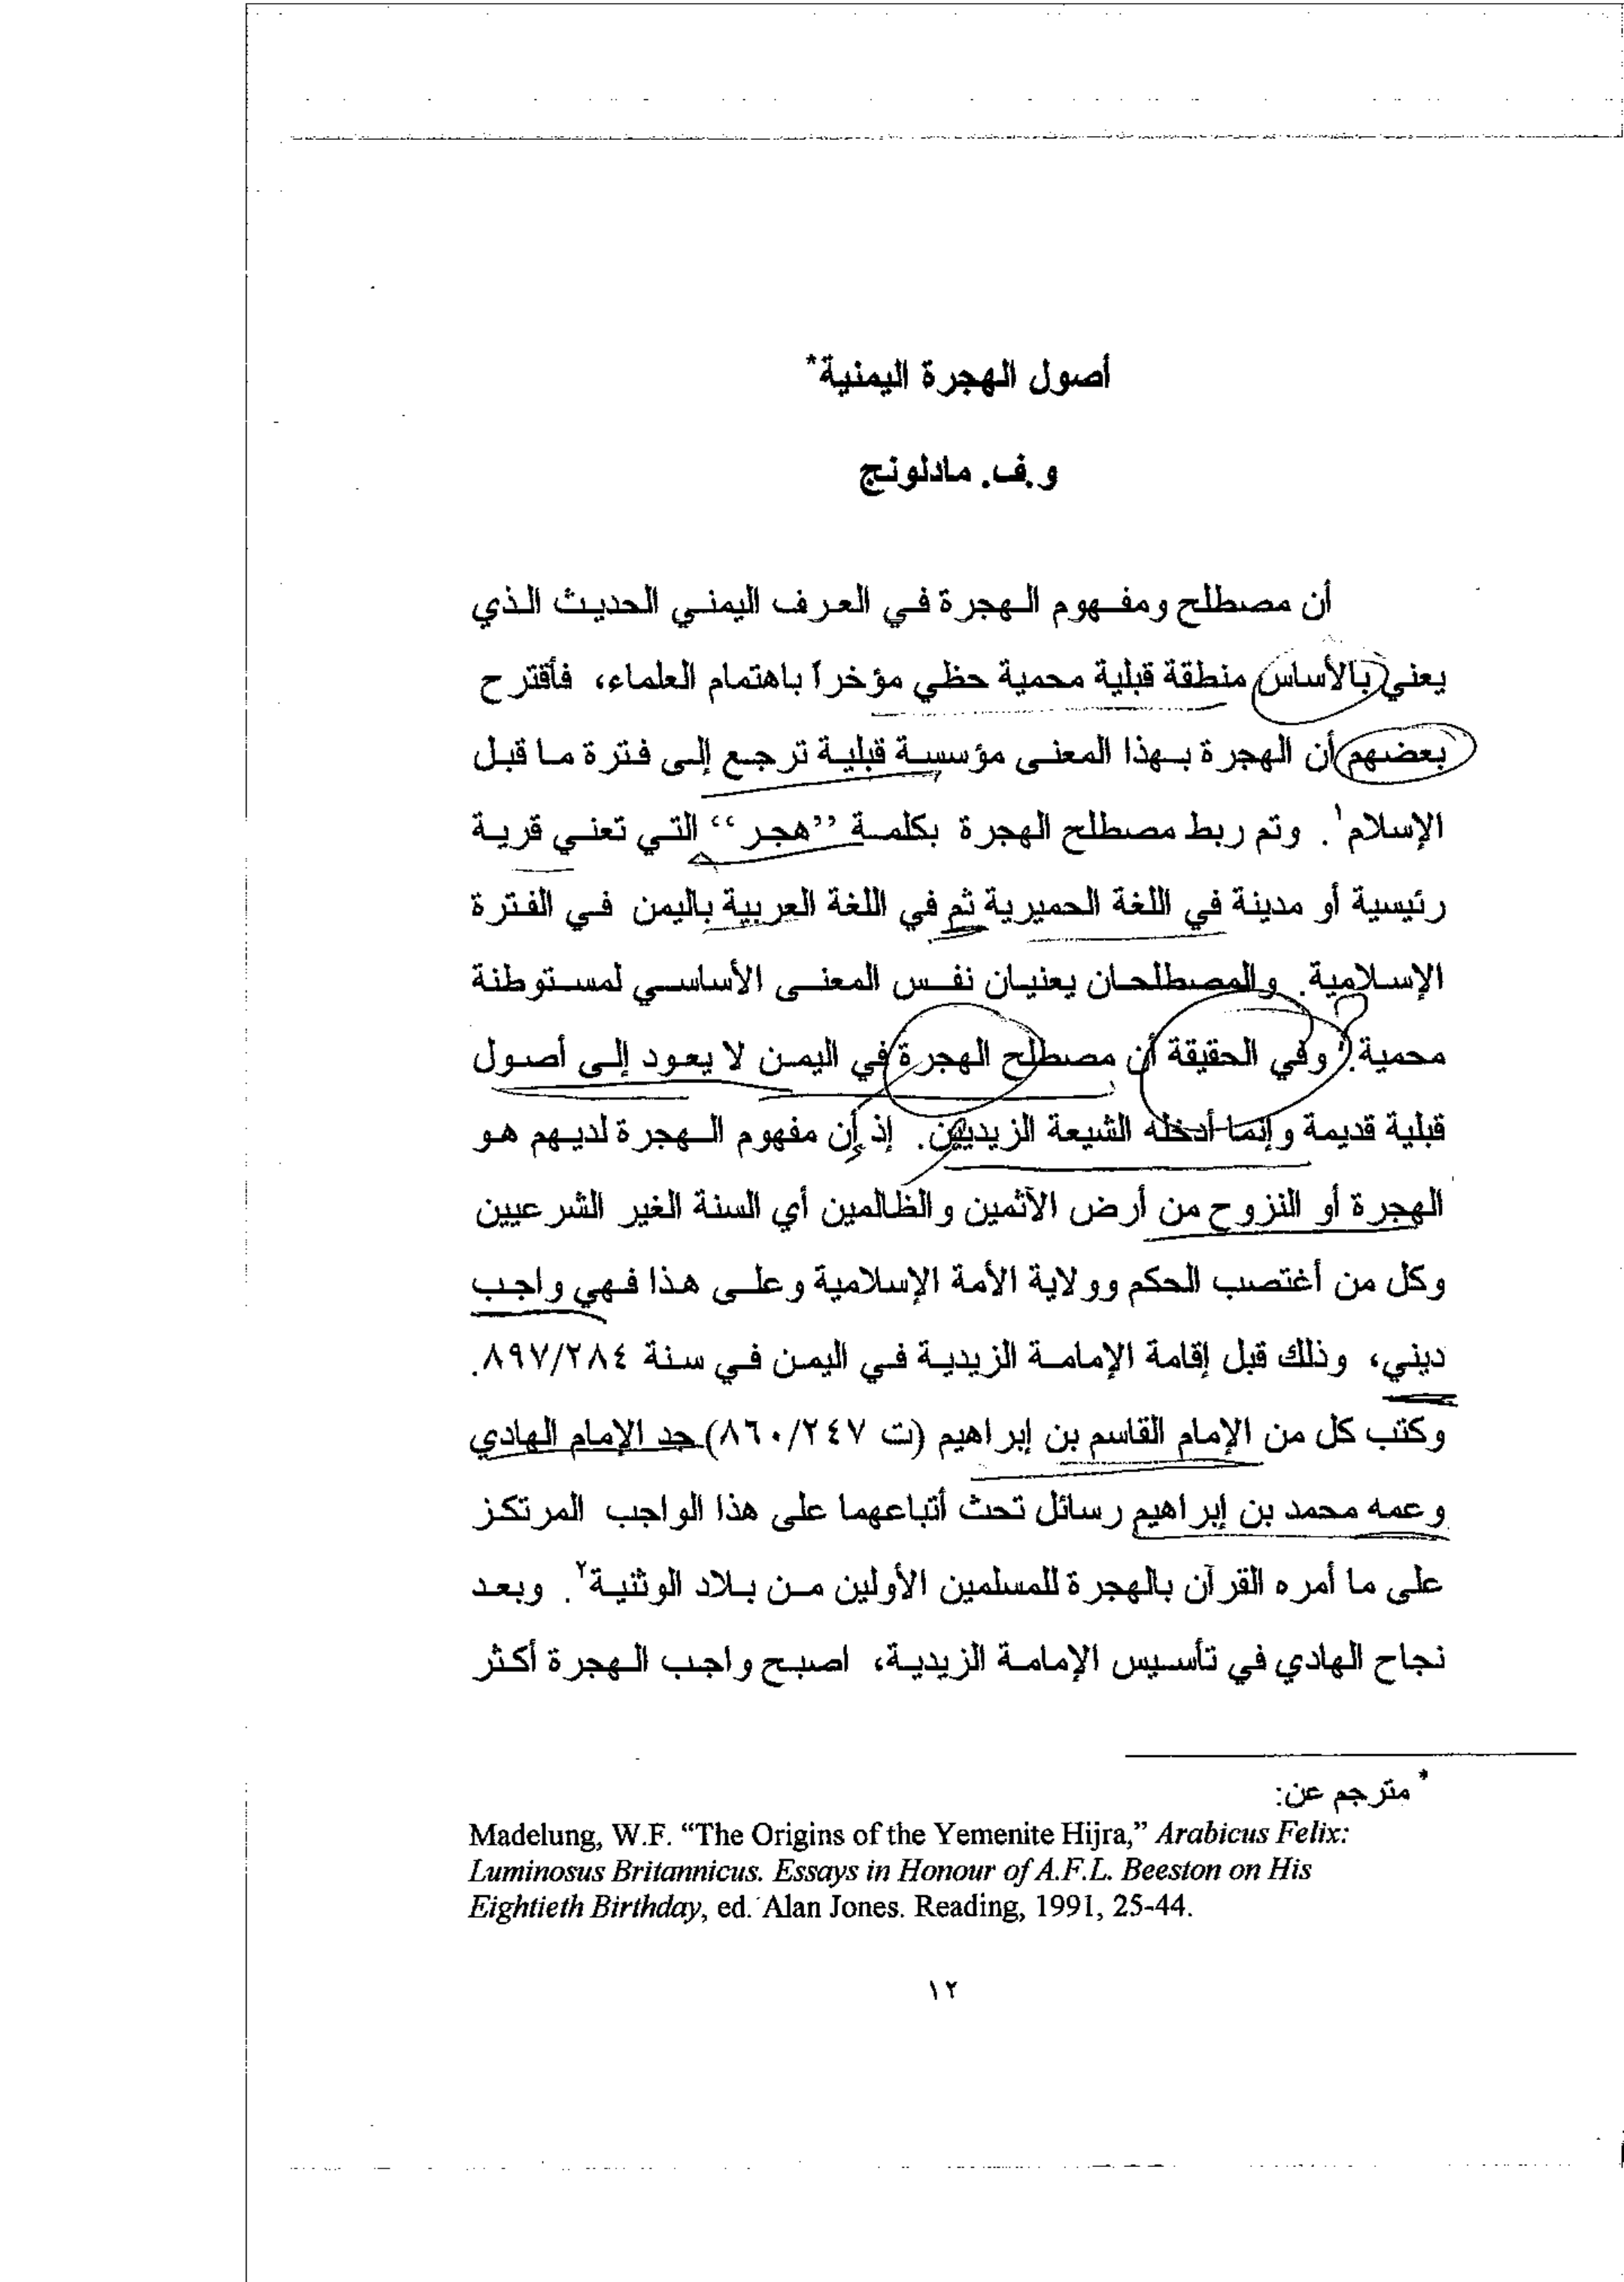 أصول الهجرة اليمنية*
و.ف. مادلونج
أن مصطلح ومفهوم الهجرة في العرف اليمني الحديث الذي
يعني بالأساس منطقة قبلية محمية حظي مؤخراً باهتمام العلماء، فأقترح
بعضهم أن الهجرة بهذا المعنى مؤسسة قبلية ترجع إلى فترة ما قبل
الإسلام١. وتم ربط مصطلح الهجرة بكلمة ”هجر“ التي تعني قرية
رئيسية أو مدينة في اللغة الحميرية ثم في اللغة العربية باليمن في الفترة
الإسلامية. والمصطلحان يعنيان نفس المعنى الأساسي لمستوطنة
محمية. وفي الحقيقة أن مصطلح الهجرة في اليمن لا يعود إلى أصول
قبلية قديمة وإنما أدخله الشيعة الزيديين. إذ إن مفهوم الهجرة لديهم هو
الهجرة أو النزوح من أرض الآثمين والظالمين أي السنة الغير الشرعيين
وكل من أغتصب الحكم وولاية الأمة الإسلامية وعلى هذا فهي واجب
ديني، وذلك قبل إقامة الإمامة الزيدية في اليمن في سنة ٨٩٧/٢٨٤.
وكتب كل من الإمام القاسم بن إبراهيم (ت ٨٦٠/٢٤٧) جد الإمام الهادي
وعمه محمد بن إبراهيم رسائل تحث أتباعهما على هذا الواجب المرتكز
على ما أمره القرآن بالهجرة للمسلمين الأولين من بلاد الوثنية٢. وبعد
نجاح الهادي في تأسيس الإمامة الزيدية، اصبح واجب الهجرة أكثر
* مترجم عن:
Madelung, W.F. “The Origins of the Yemenite Hijra,” Arabicus Felix:
Luminosus Britannicus. Essays in Honour of A.F.L. Beeston on His
Eightieth Birthday, ed. Alan Jones. Reading, 1991, 25-44.
١٢